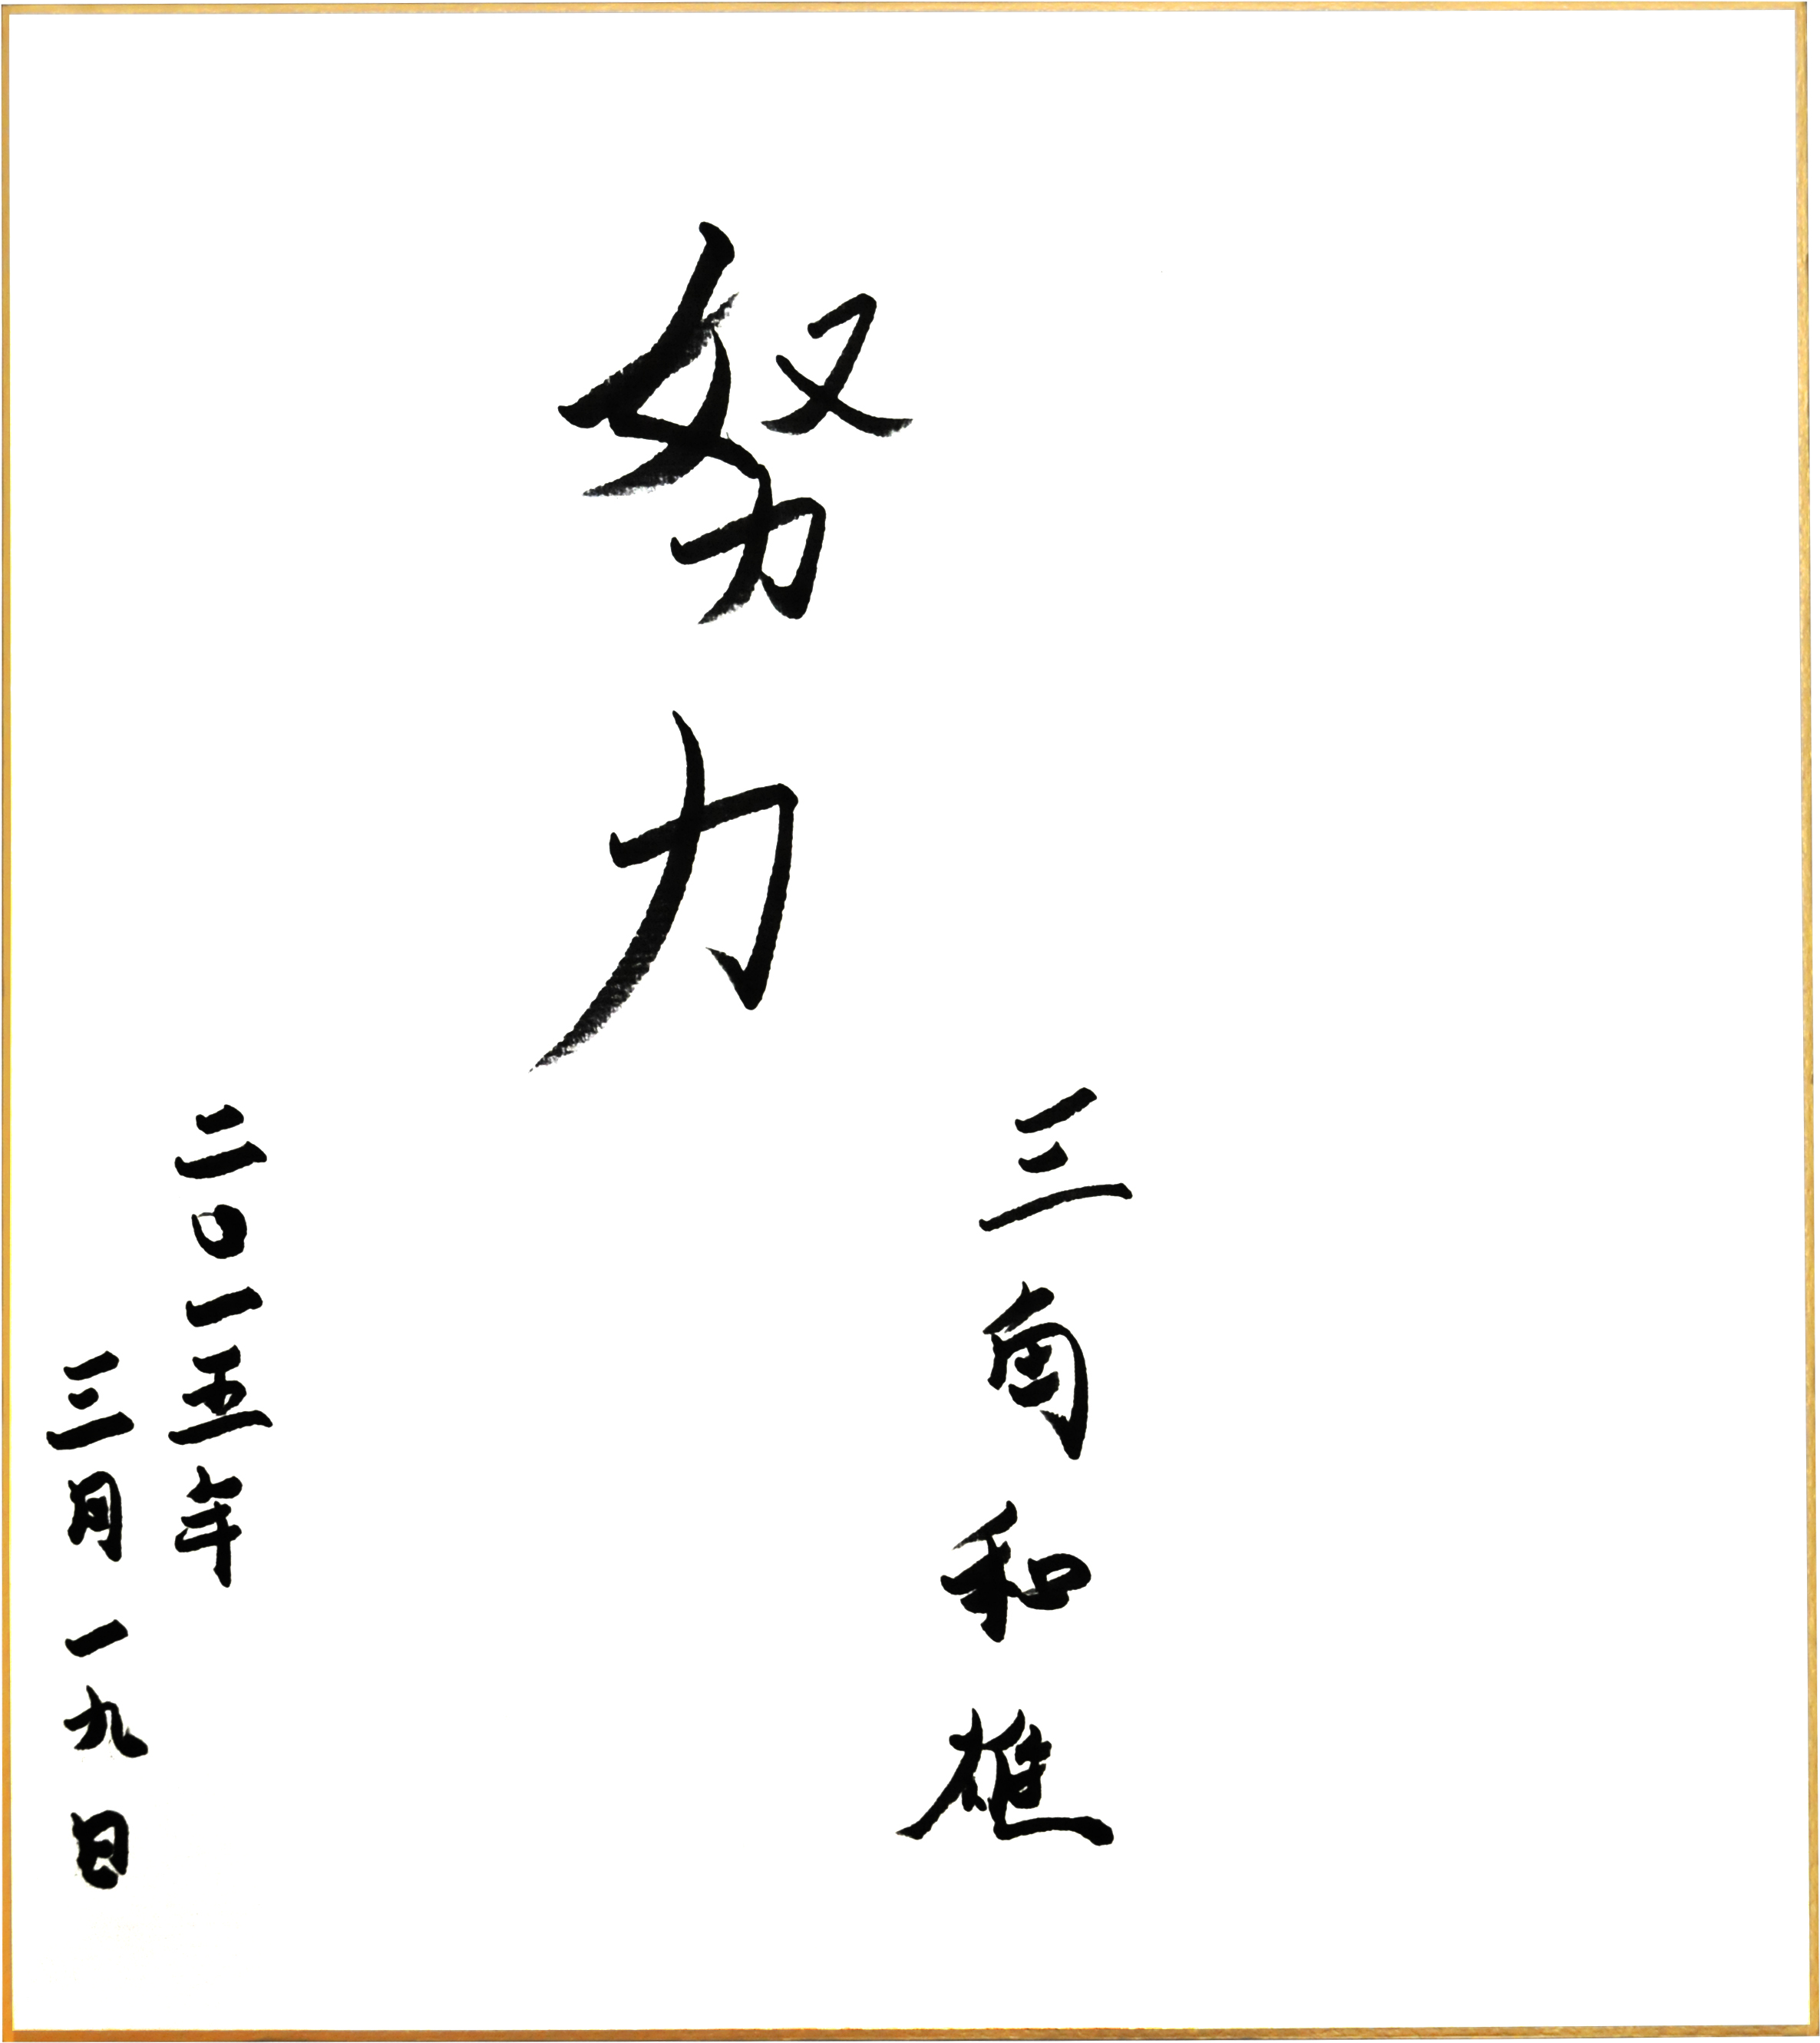 三角和雄
努力
二〇一五年
三月一九日